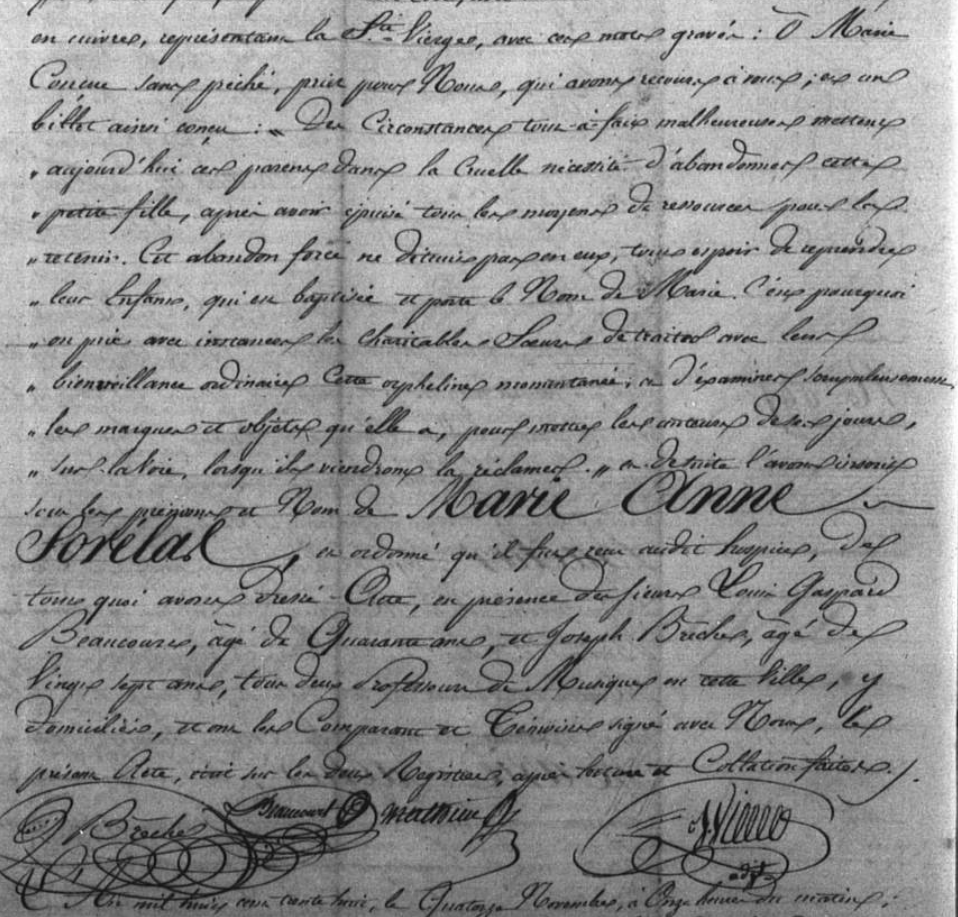 en cuivre, représentant la Ste Vierge, avec ces mots gravés : Ô Marie
Concue sans péché, priez pour Nous, qui avons recours à vous ; et un
billet ainsi conçu : „ Des Circonstances tout-à-fait malheureuses mettent
„ aujourd'hui ces parens dans la Cruelle nécessité d'abandonner cette
„ petite fille, après avoir épuisé tous les moyens de ressources pour la
„ retenir. Cet abandon forcé ne détruit pas en eux, tous espoir de reprendre
„ leur Enfant, qui est baptisée et porte le Nom de Marie. C'est pourquoi
„ on prie avec instances les charitables Sœurs de traiter avec leur
„ bienveillance ordinaire Cette orpheline momentanée ; et d'éxaminer scrupuleusement
„ les marques et objets qu'elle a, pour mettre les auteurs de ses jours,
„ sur la Voie, lorsqu'ils viendront la réclamer. „ et de suite l'avons inscrite
sous les prénoms et Nom de Marie Anne
Sorélas, et ordonné qu'il fut reçu audit hospice, de
tout quoi avons dressé Acte, en présence des sieurs Louis Gaspard
Beaucourt, âgé de Quarante ans, et Joseph Brêche, âgé de
Vingt sept ans, tous deux Professeurs de Musique en cette Ville, y
domiciliés, et ont les Comparant et Témoins signé avec Nous, le
présent Acte, écrit sur les deux Registres, après lecture et Collation faites ./.
J. Brêche Beaucourt Mathieu
adjt
An mil huit cent trente huit, le Quatorze Novembre, à Onze heures du matin ;